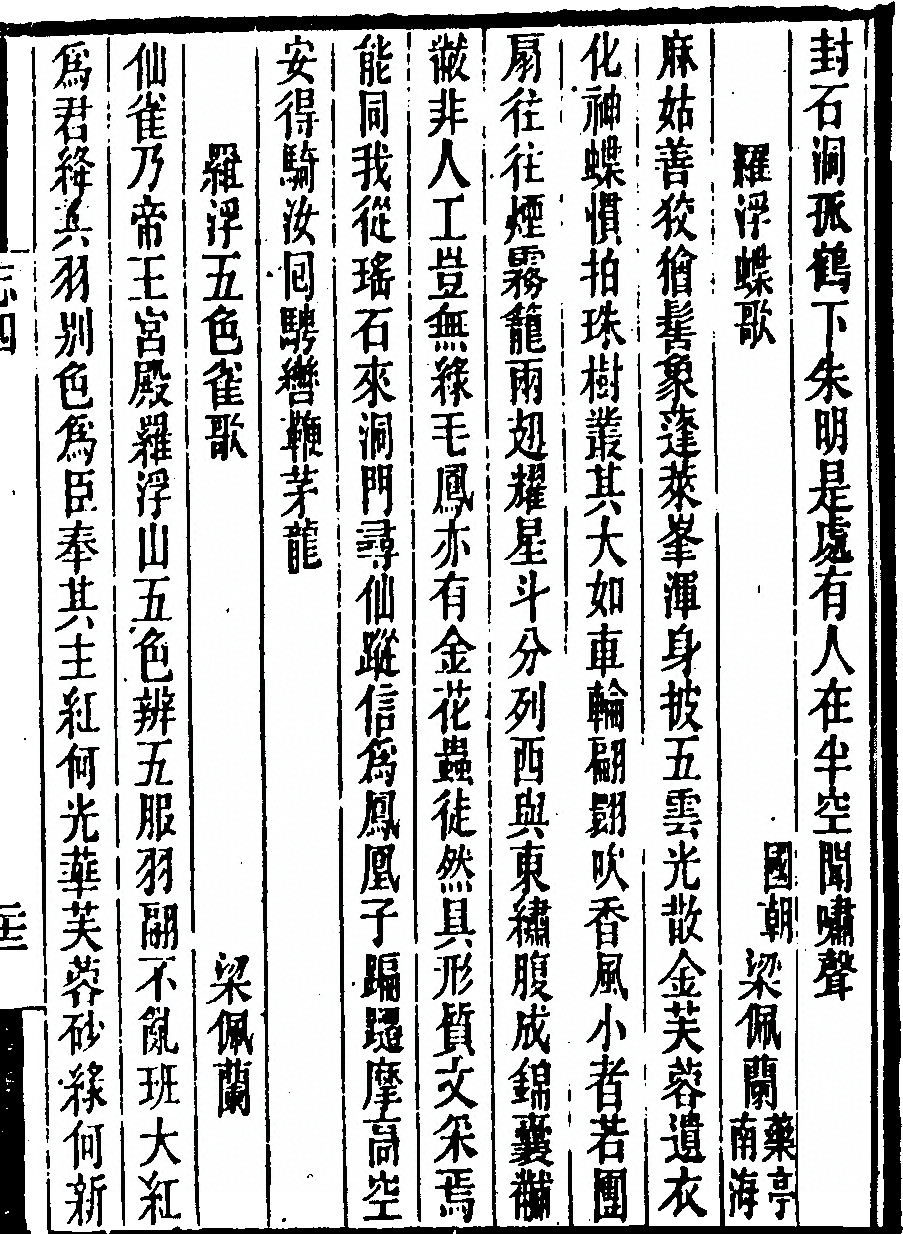 封石洞孤鶴下朱明是處有人在半空聞嘯聲
羅浮蝶歌 國朝梁佩蘭藥亭南海
麻姑善狡獪髻象蓬萊峯渾身披五雲光散金芙蓉遺衣
化神蝶慣拍珠樹叢其大如車輪翩翾吹香風小者若團
扇往往煙霧籠兩翅耀星斗分列西與東繡腹成錦囊黼
黻非人工豈無綠毛鳳亦有金花蟲徒然具形質文采焉
能同我從瑤石來洞門尋仙蹤信爲鳳凰子蹁躚摩高空
安得騎汝囘騁轡鞭茅龍
羅浮五色雀歌 梁佩蘭
仙雀乃帝王宮殿羅浮山五色辨五服羽翮不亂班大紅
爲君絳兵羽别色爲臣奉其主紅何光華芙蓉砂綠何新
志四